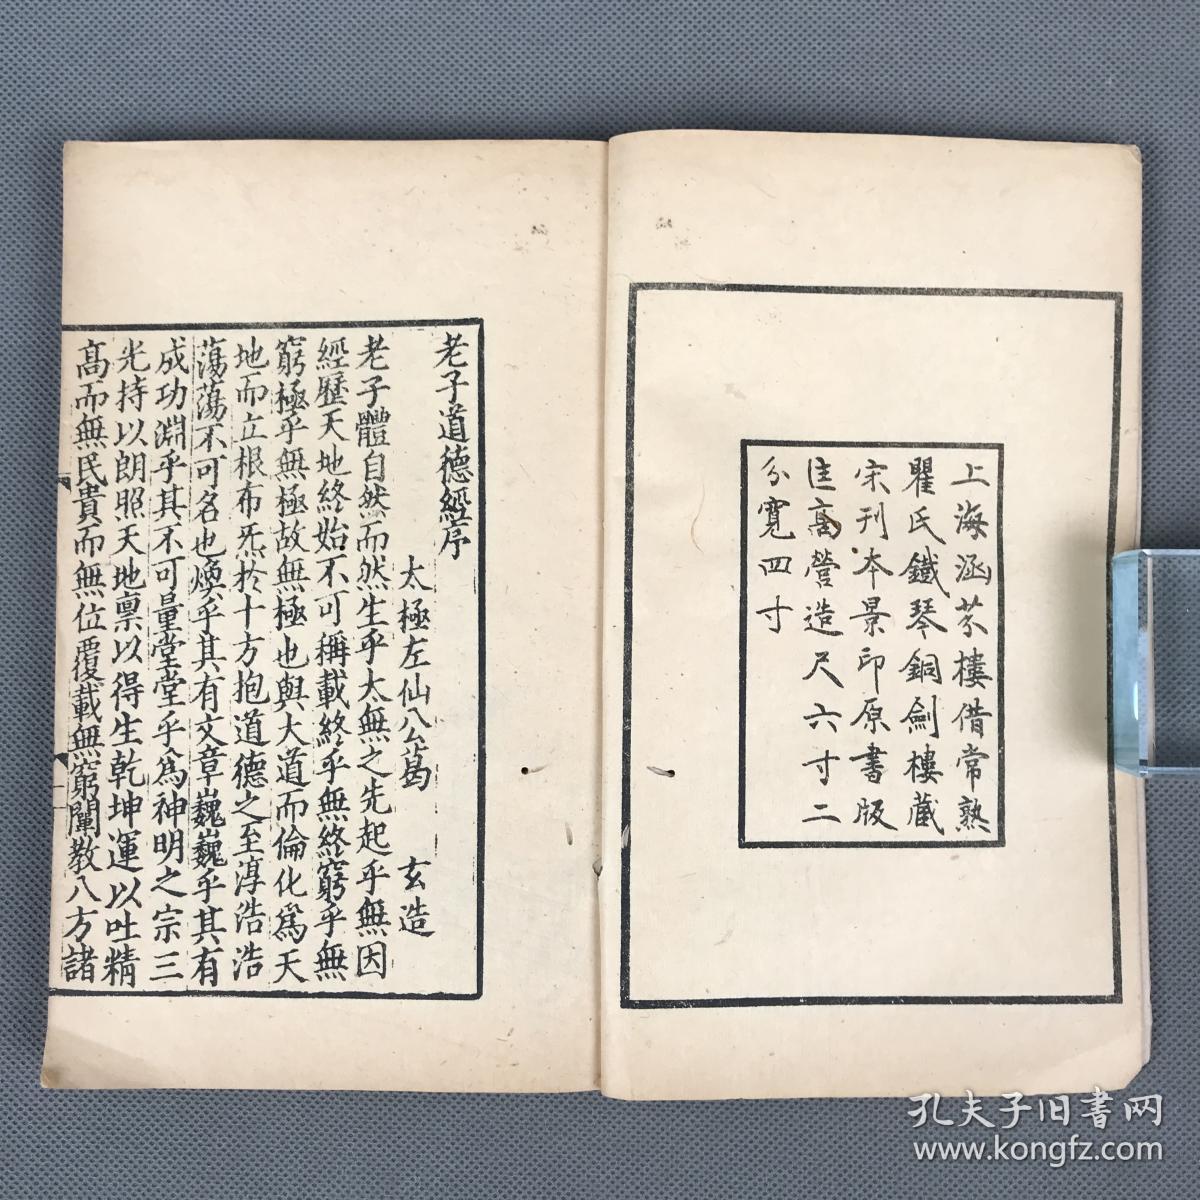 上海涵芬樓借常熟
瞿氏鐵琴銅劍樓藏
宋刊本景印原書版
匡高營造尺六寸二
分寬四寸
老子道德經序
太極左仙公葛　玄造
老子體自然而然生乎太無之先起乎無因
經歷天地終始不可稱載終乎無終窮乎無
窮極乎無極故無極也與大道而倫化爲天
地而立根布炁於十方抱道德之至淳浩浩
蕩蕩不可名也煥乎其有文章巍巍乎其有
成功淵乎其不可量堂堂乎爲神明之宗三
光持以朗照天地稟以得生乾坤運以吐精
高而無民貴而無位覆載無窮闡教八方諸
孔夫子旧書网
www.kongfz.com